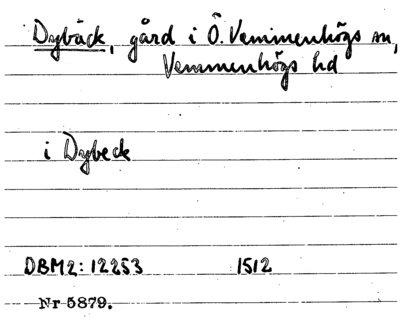 Dybäck, gård i Ö. Vemmenhögs sn,
Vemmenhögs hd
i Dybeck
DBM2: 12253 1512
Nr 5879.